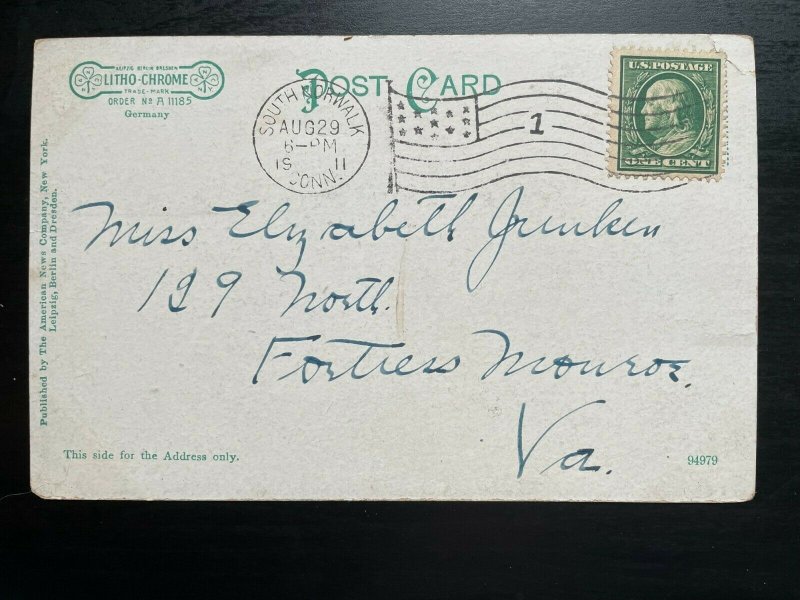 LEIPZIG BERLIN DRESDEN
LITHO-CHROME
TRADE-MARK
ORDER No A 11185
Germany
POST CARD
SOUTH NORWALK
AUG 29
6-PM
19 11
CONN.
1
U.S. POSTAGE
ONE CENT
Miss Elizabeth Junken
129 North.
Fortress Monroe.
Va.
Published by The American News Company, New York.
Leipzig, Berlin and Dresden.
This side for the Address only.
94979